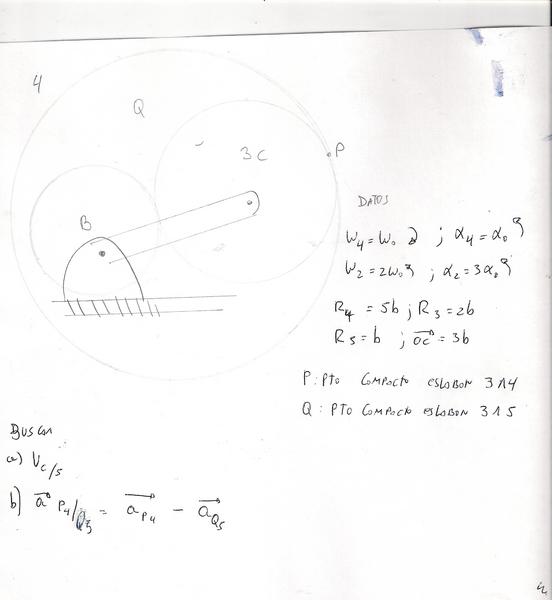 4
Q
3 C
P
B
DATOS
W₄ = W₀ ↻ ; α₄ = α₀ ↺
W₂ = 2W₀ ↺ ; α₂ = 3α₀ ↺
R₄ = 5b ; R₃ = 2b
R₅ = b ; OC = 3b
P: PTO COMPACTO ESLOBON 3 ∧ 4
Q: PTO COMPACTO ESLOBON 3 ∧ 5
Buscar
a) V C/5
b) a P₄/Q₅ = a P₄ − a Q₅